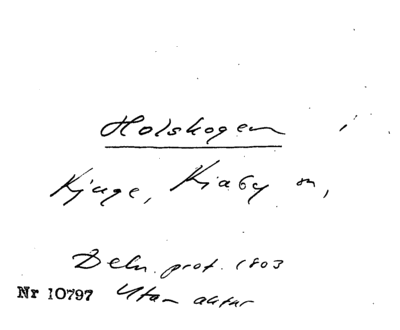 Holskogen i
Kjuge, Kiaby sn,
Deln. prot. 1803
Nr 10797 Utan aktnr